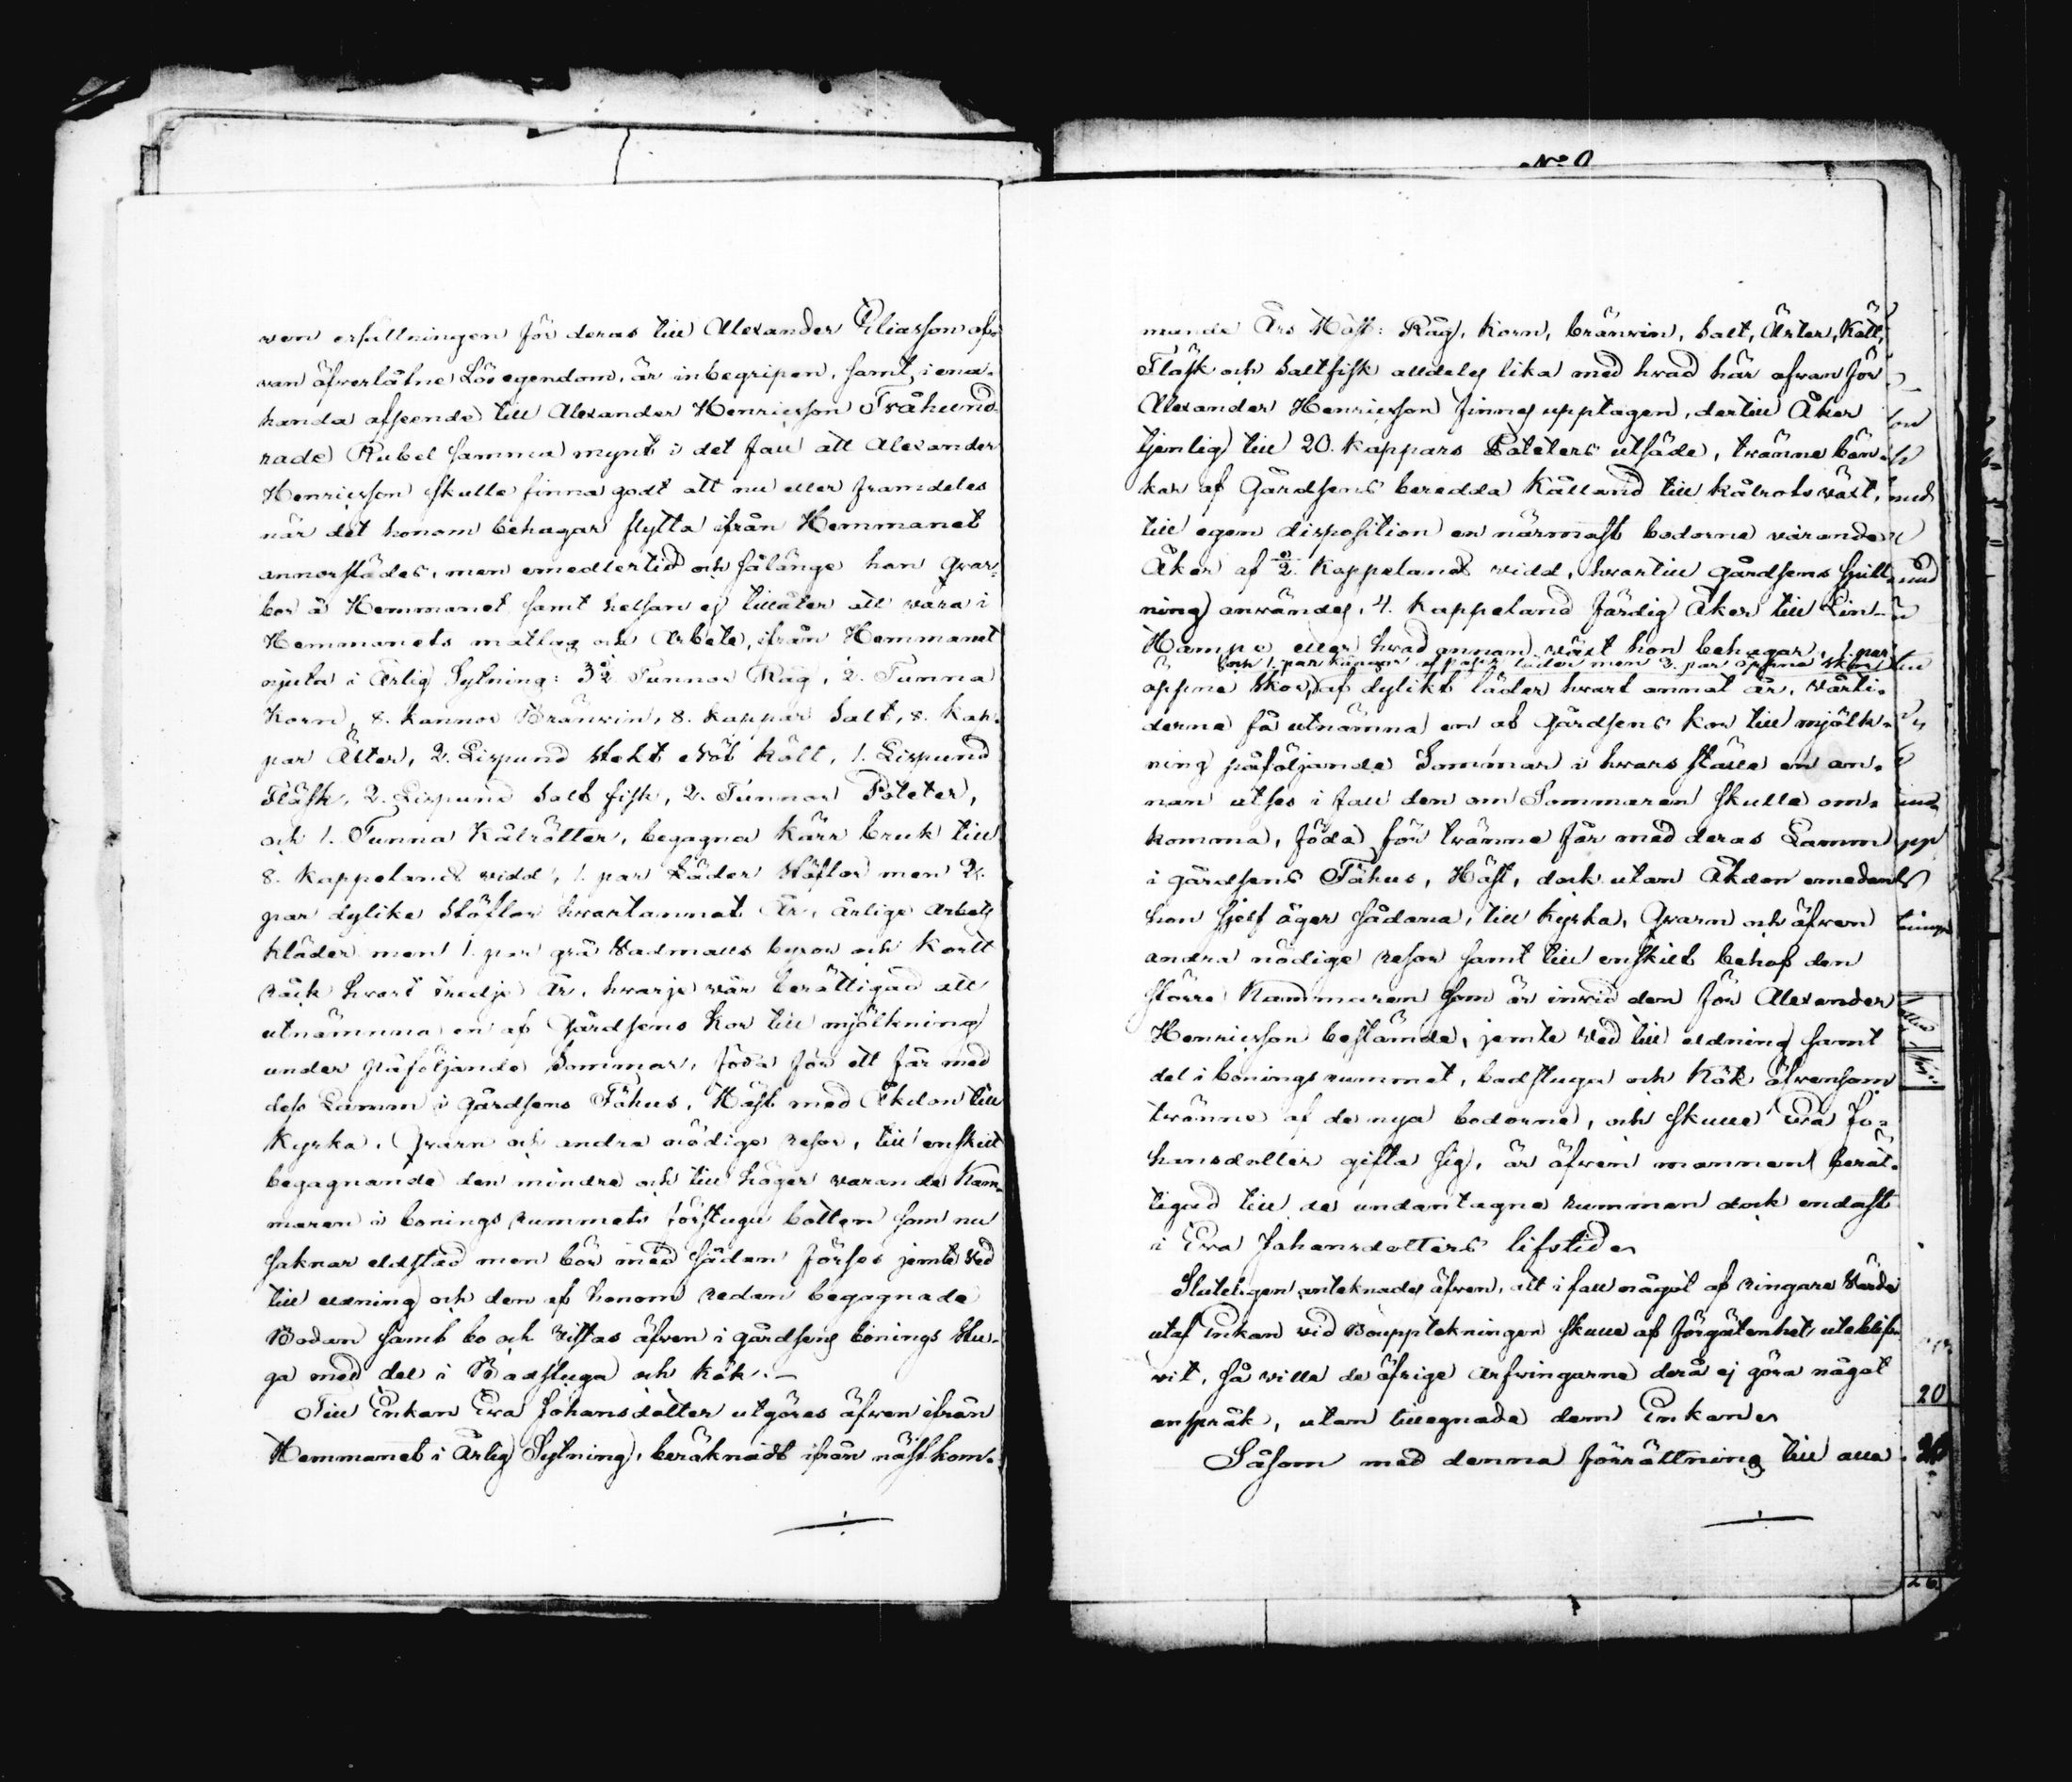 vern ersättningen för deras till Alexander Eliasson of-
van äfverlåtne Lösegendom, är inbegripen, samt, i ena-
handa afseende till Alexander Henricsson Tvåhund-
rade Rubel samma mynt i det fall att Alexander
Henricsson skulle finna godt att nu eller framdeles
när det honom behagar flytta ifrån Hemmanet
annorstädes, men emedlertid och sålänge han qvar-
bor å Hemmanet samt helsan ej tillåter att vara i
Hemmanets matlag och Arbete, ifrån Hemmanet
njuta i Årlig Sytning: 3½ Tunnor Råg, ½ Tunna
Korn, 8. kannor Bränvin, 8. kappar Salt, 8. kap-
par Ärter, 2. Lispund kött, 1. Lispund
Fläsk, 2. Lispund Salt fisk, 2. Tunnor Poteter,
och 1. Tunna Kålrötter, begagna kärr bruk till
8. Kappelands vidd, 1. par Läder Stöflor men 2.
par dylike Stöflor hvartannat År, årlige Arbets
kläder men 1. par grå Vadmals byxor och Kortt
råck hvart tredje År, hvarje vår berättigad att
utnämna en af Gårdsens Kor till mjölkning
under påföljande Sommar, föda för ett får med
dess Lamm i gårdsens Fähus, Häst med Åkdon till
Kyrka, Qvarn och andra nödige resor, till enskilt
begagnande den mindre och till höger varande Kam-
maren i bonings rummets förstugu botten som nu
saknar eldstad men bör med sådan förses jemte Ved
till eldning och den af honom redan begagnade
Bodan samt bo och vistas äfven i gårdsens bonings stu-
ga med del i Badstuga och kök.-
Till Enkan Eva Johansdotter utgöres äfven ifrån
Hemmanet i Årlig Sytning, beräknadt ifrån nästkom-
No
mande Års Höst: Råg, Korn, bränvin, Salt, Ärter, Kött,
Fläsk och Saltfisk alldeles lika med hvad här ofvan för
Alexander Henricsson finnes upptagen, dertill Åker
tjenlig till 20. kappars Poteters utsäde, tvänne bän-
kar af Gårdsens beredda kålland till kålrots växt,
till egen disposition en närmast bodorne varande
Åker af Kappelands vidd, hvartill gårdsens spill-
ning användes, 4. Kappeland färdig Åker till Lin-
Hampe eller hvad annan växt hon behagar, 1. par
och 1. par kängor af läder men 2. par öppna skor
öppna Skor, af dylikt läder hvart annat år, Vårti-
derna få utnämna en af Gårdsens kor till mjölk-
ning påföljande Sommar i hvars ställe en an-
nan utses i fall den om Sommaren skulle om-
komma, föda för tvänne får med deras Lamm
i gårdsens Fähus, Häst, dock utan Åkdon emedan
hon sjelf äger sådana, till kyrka, Qvarn och äfven
andra nödige resor samt till enskilt behof den
större Kammaren som är invid den för Alexander
Henricsson bestämde, jemte Ved till eldning samt
del i bonings rummet, badstuga och Kök äfvensom
tvänne af de nya bodorne, och skulle Eva Jo-
hansdotter gifta sig, är äfven mannen berät-
tigad till de undantagne rummen dock endast
i Eva Johansdotters lifstid
Sluteligen anteknades äfven, att i fall något af ringare Värde
utaf Enkan vid Bouppteknningen skulle af förgätenhet uteblif-
vit, så ville de öfrige Arfvingarne derå ej göra något
anspråk, utan tillegnade dem Enkan
Såsom med denna förrättning till alla
20